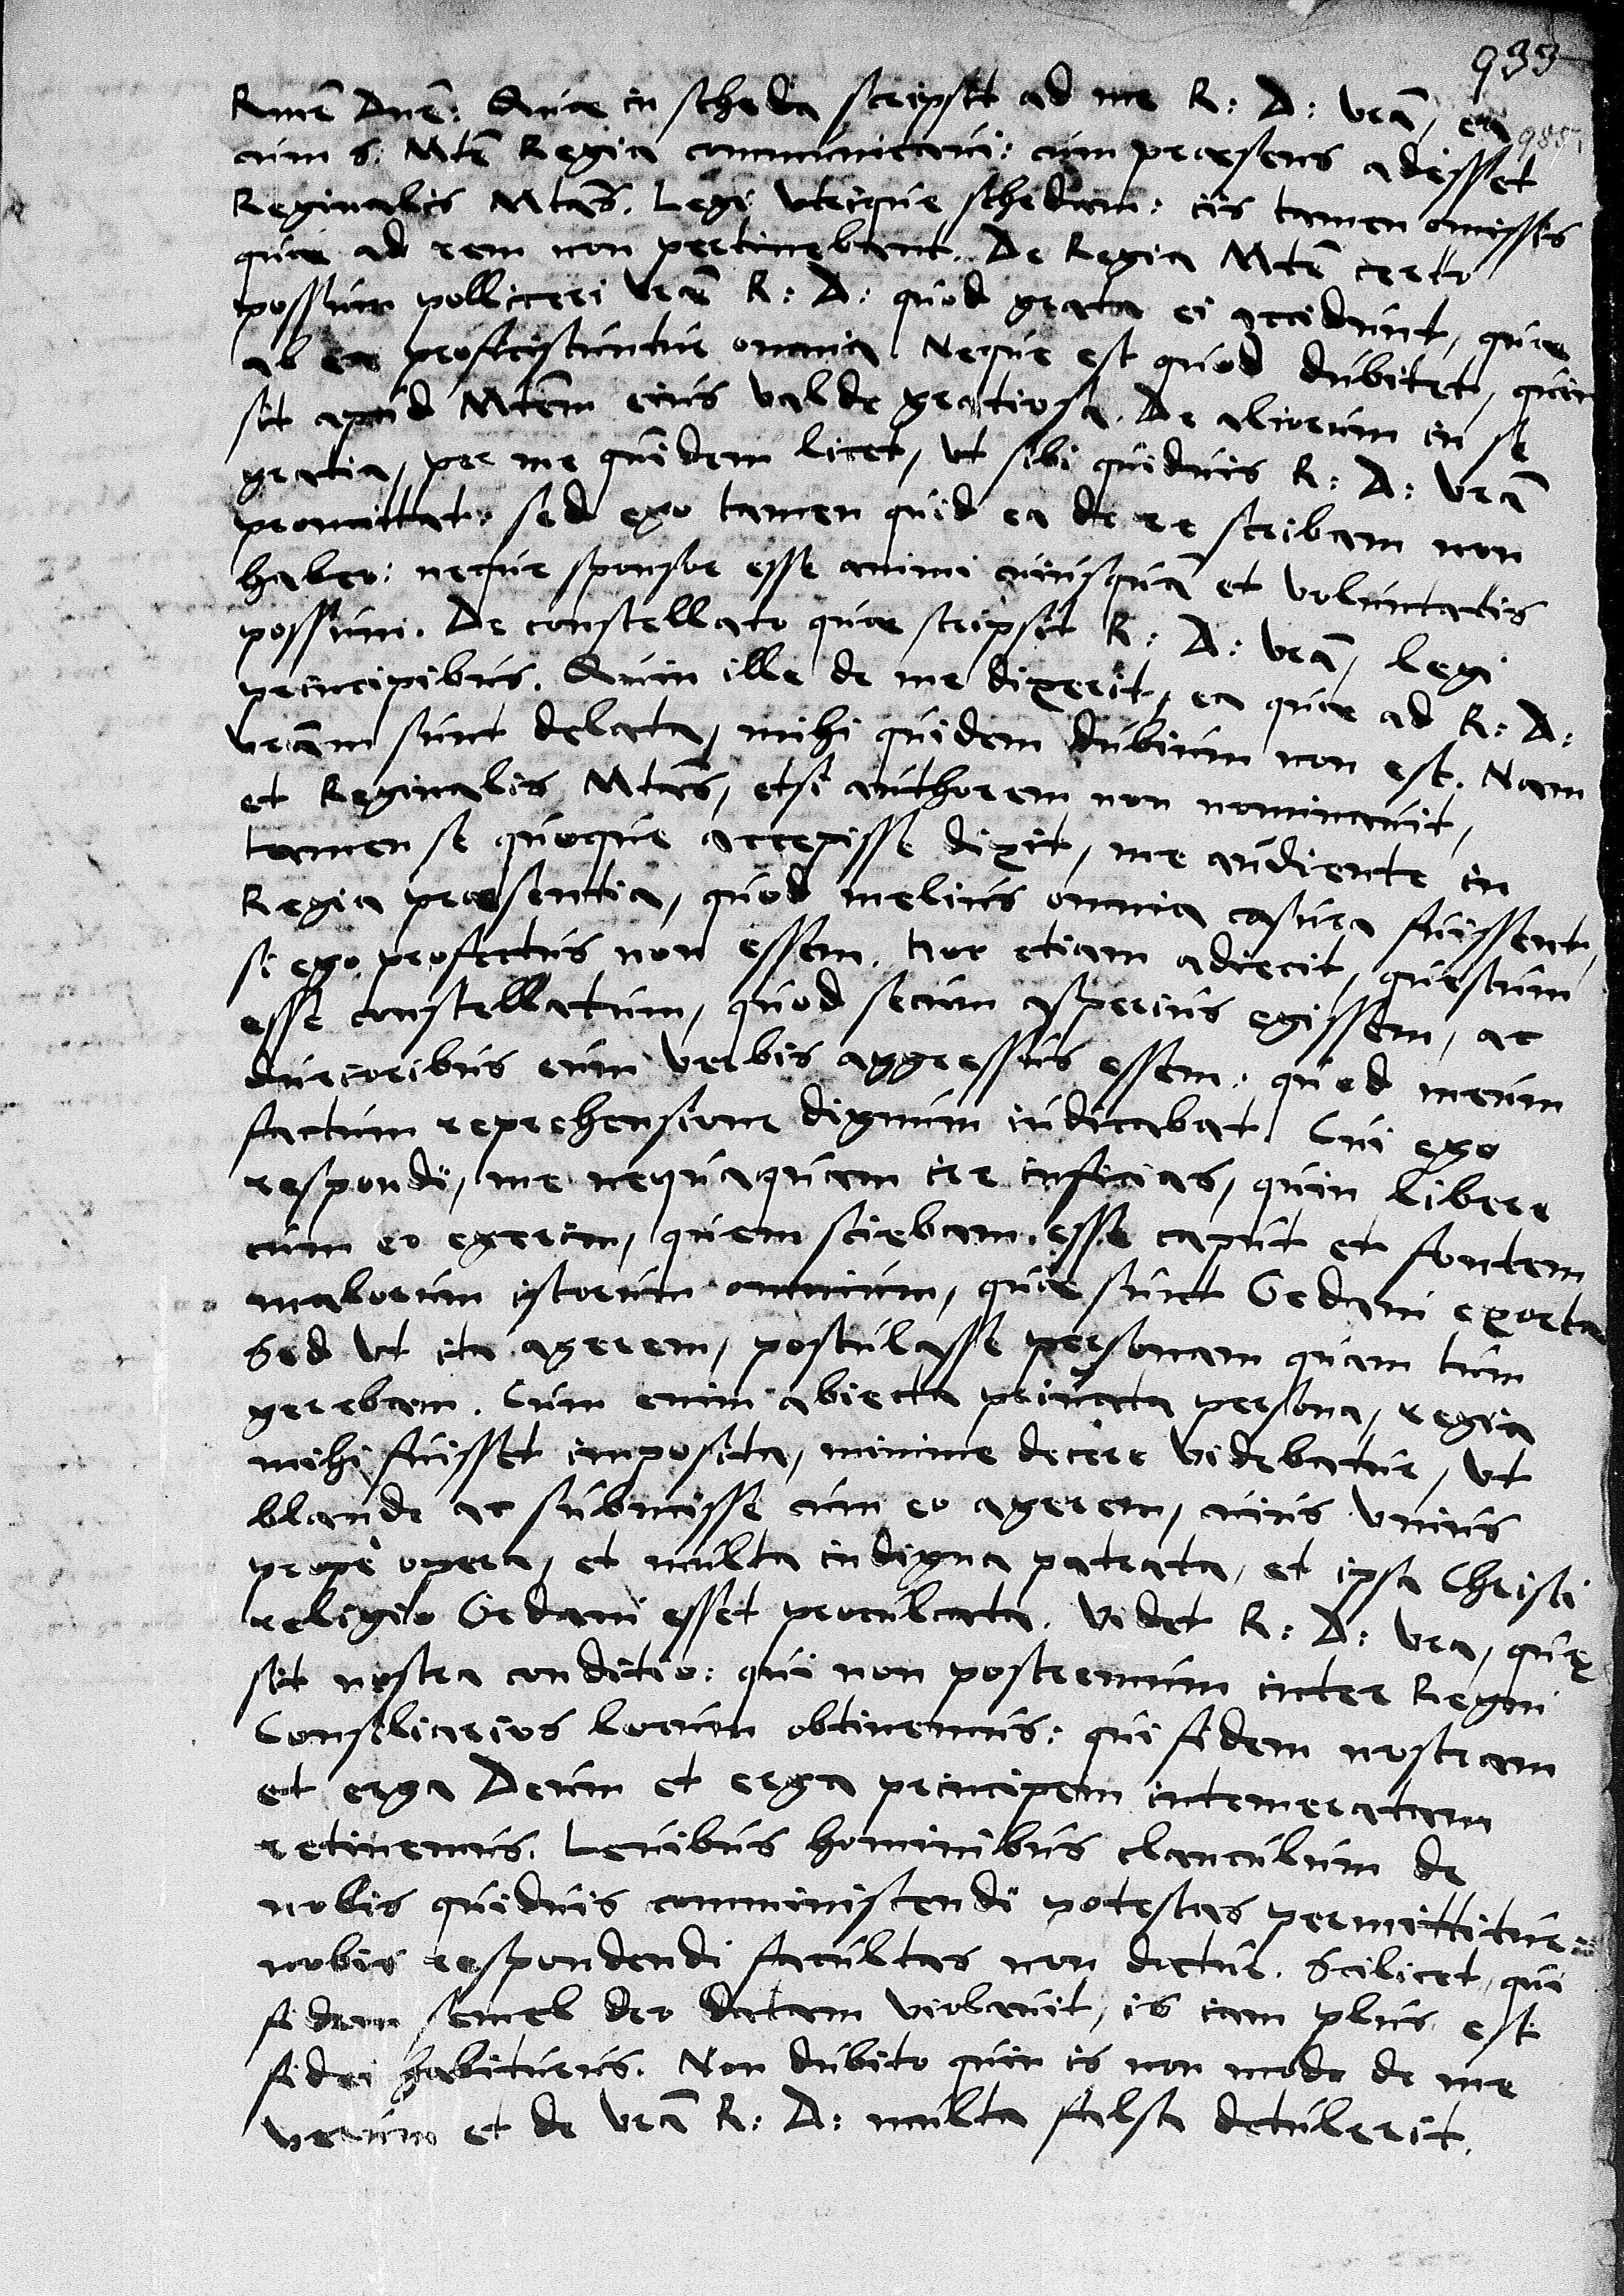 933
Rme Dne: Quae in scheda scripsit ad me R: D: vra, ea
9857
cum S: Mte Regia communicavi: cum praesens adesset
Reginalis Mtas. Legi utrique schedam: iis tamen omissis
quae ad rem non pertinebant. De Regia Mte certo
possum polliceri vrae R: D: quod grata ei accidunt, quae
ab ea proficiscuntur omnia. Neque est quod dubitet, quin
sit apud Mtem eius valde gratiosa. De aliorum in se
gratia, per me quidem licet, ut sibi quidvis R: D: vra
promittat: sed ego tamen quid ea de re scribam non
habeo: neque sponsor esse animi cuiusqua et voluntatis
possum. De constellato quae scripsit R: D: vra, legi
principibus. Quin ille de me dixerit, ea quae ad R: D:
vram sunt delata, mihi quidem dubium non est. Nam
et Reginalis Mtas, etsi authorem non nominavit,
tamen se quoque accepisse dixit, me audiente in
Regia praesentia, quod melius omnia casura fuissent,
si ego profectus non essem. Hoc etiam adiecit, questum
esse constellatum, quod secum asperius egissem, ac
durioribus eum verbis aggressus essem: quod meum
factum reprehensione dignum iudicabat. Cui ego
respondi, me nequaquam ire inficias, quin libere
cum eo egerim, quem sciebam esse caput et fontem
malorum istorum omnium, quae sunt Gedani exorta
Sed ut ita agerem, postulasse personam quam tum
gerebam. Cum enim abiecta privata persona, regia
mihi fuisset imposita, minime decere videbatur, ut
blande ac submisse cum eo agerem, cuius unius
prope opera, et multa indigna patrata, et ipsa Christi
religio Gedani esset proculcata. Videt R: D: vra, quae
sit nostra conditio: qui non postremum inter Regni
Consiliarios locum obtinemus: qui fidem nostram
et erga Deum et erga principem intemeratam
retinemus. Levibus hominibus clanculum de
nobis quidvis comminiscendi potestas permittitur:
nobis respondendi facultas non datur. Scilicet, qui
fidem semel deo datam violavit, is iam plus est
fidei habiturus. Non dubito quin is non modo de me
verum et de vra R: D: multa falsa detulerit.